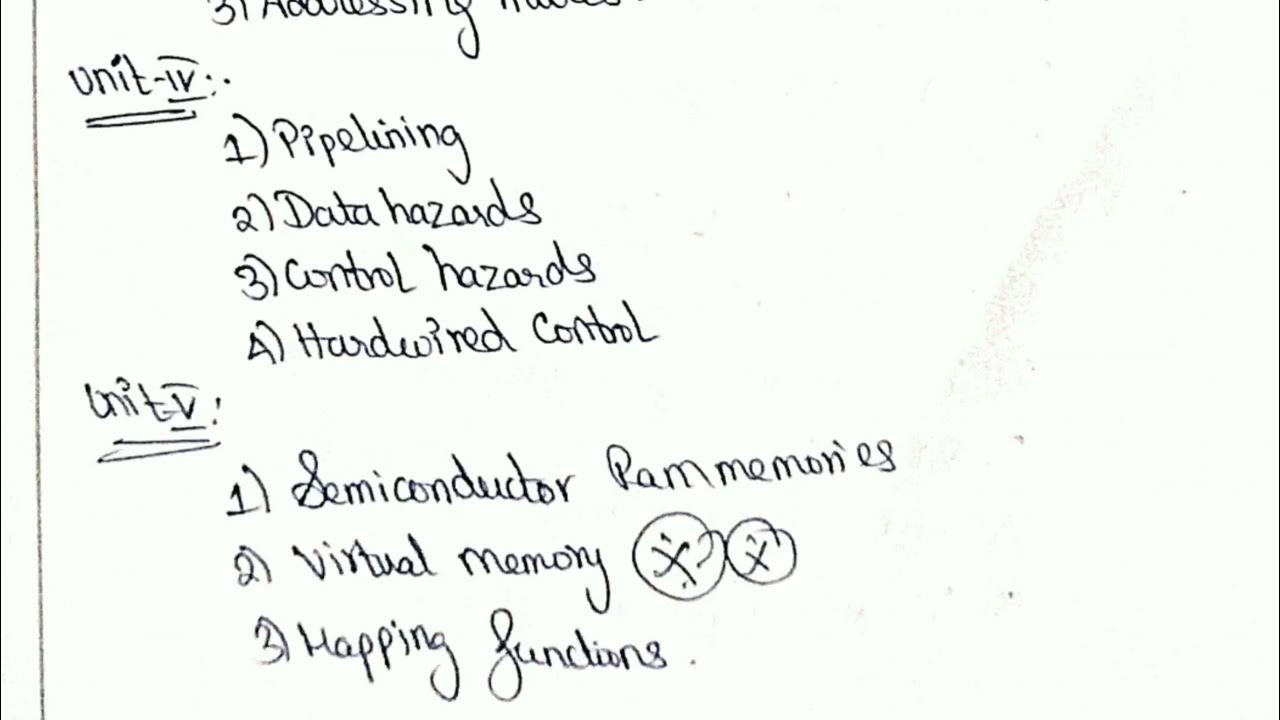 3) Addressing
Unit-IV:-
1) Pipelining
2) Data hazards
3) Control hazards
4) Hardwired Control
Unit-V:
1) Semiconductor Ram memories
2) Virtual memory
3) Mapping functions.